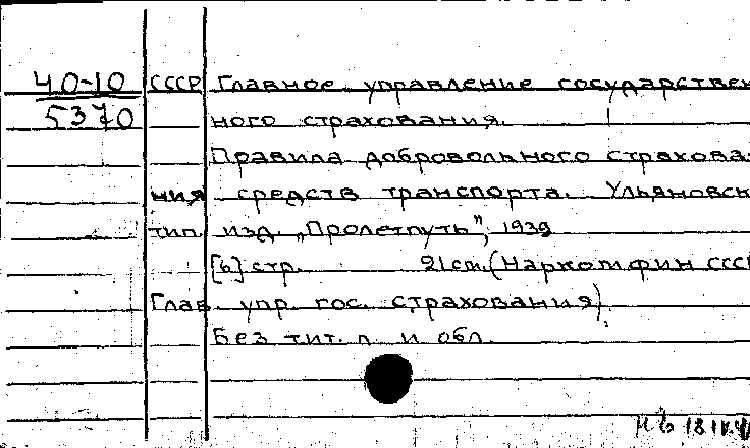 40-10 СССР Главное управление государствен
5370 ного страхования.
Правила добровольного страхова
ния средств транспорта. Ульяновск
тип. изд. „Пролетпуть", 1939
[6] стр. 21 cm. (Наркомфин СССР
Глав. упр. гос. страхования).
Без тит. л. и обл.